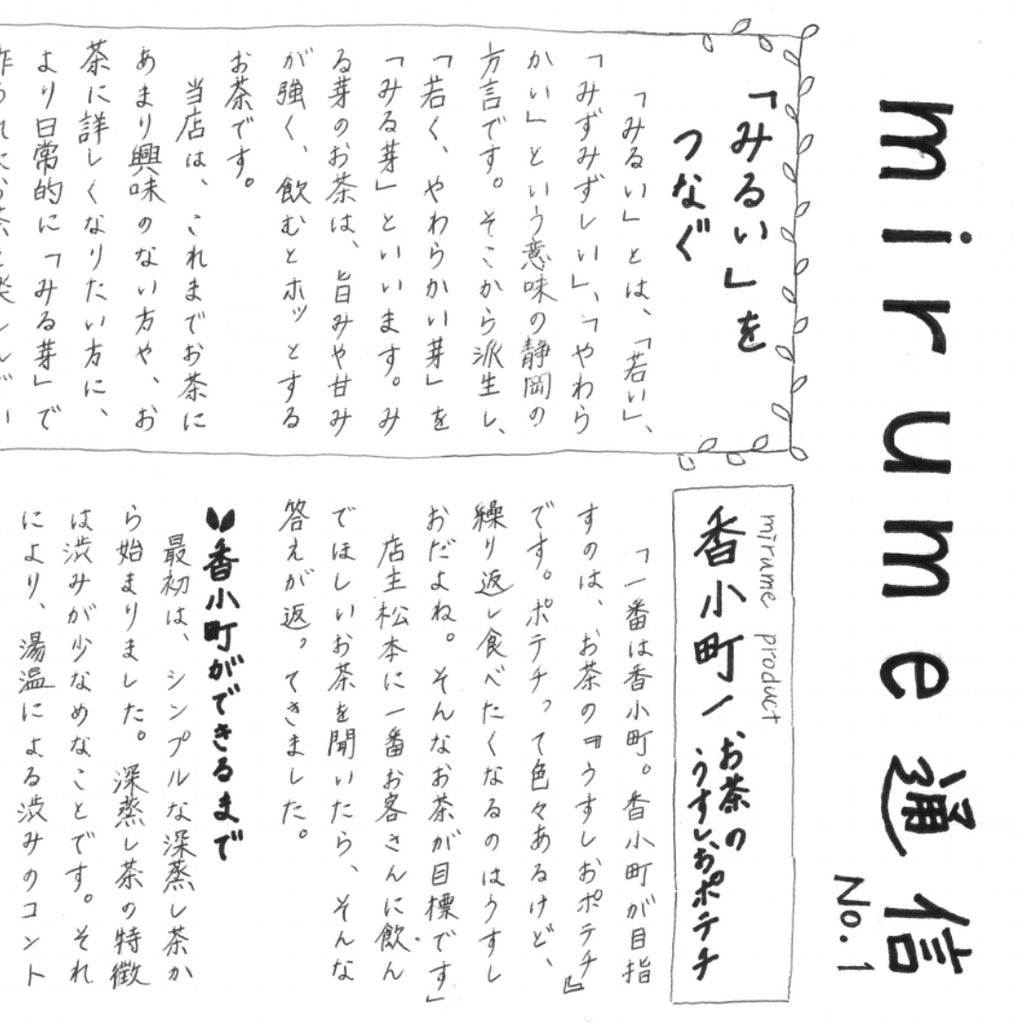 mirume 通信
No.1
「みるい」を
つなぐ
「みるい」とは、「若い」、
「みずみずしい」、「やわら
かい」という意味の静岡の
方言です。そこから派生し、
「若く、やわらかい芽」を
「みる芽」といいます。み
る芽のお茶は、旨みや甘み
が強く、飲むとホッとする
お茶です。
当店は、これまでお茶に
あまり興味のない方や、お
茶に詳しくなりたい方に、
より日常的に「みる芽」で
mirume product
香小町/お茶の
うすしおポテチ
「一番は香小町。香小町が目指
すのは、お茶の『うすしおポテチ』
です。ポテチって色々あるけど、
繰り返し食べたくなるのはうすし
おだよね。そんなお茶が目標です」
店主松本に一番お客さんに飲ん
でほしいお茶を聞いたら、そんな
答えが返ってきました。
香小町ができるまで
最初は、シンプルな深蒸し茶か
ら始まりました。深蒸し茶の特徴
は渋みが少なめなことです。それ
により、湯温による渋みのコント